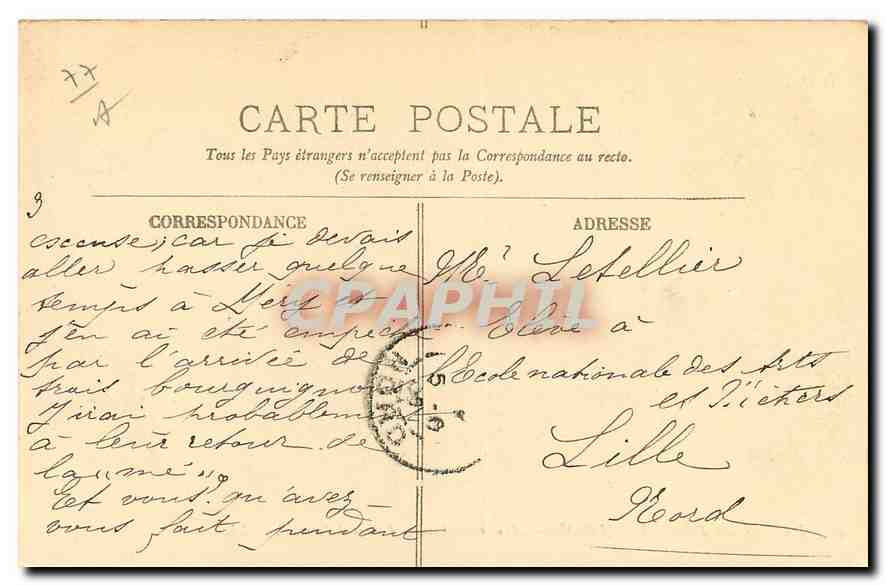 77
A
CARTE POSTALE
Tous les Pays étrangers n'acceptent pas la Correspondance au recto.
(Se renseigner à la Poste).
3
CORRESPONDANCE
excuse, car je devais
aller passer quelque
temps à Méry et
j'en ai été empêché
par l'arrivée de
trois bourguignons
J'irai probablement
à leur retour de
la „mé"
Et vous? qu'avez-
vous fait pendant
ADRESSE
Mr Letellier
Elève à
l'Ecole nationale des Arts
et Métiers
Lille
Nord
CPAPHIL
NORD